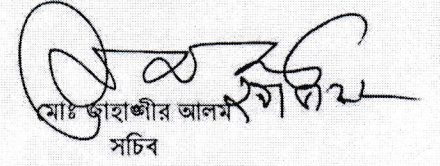 মোঃ জাহাঙ্গীর আলম
সচিব